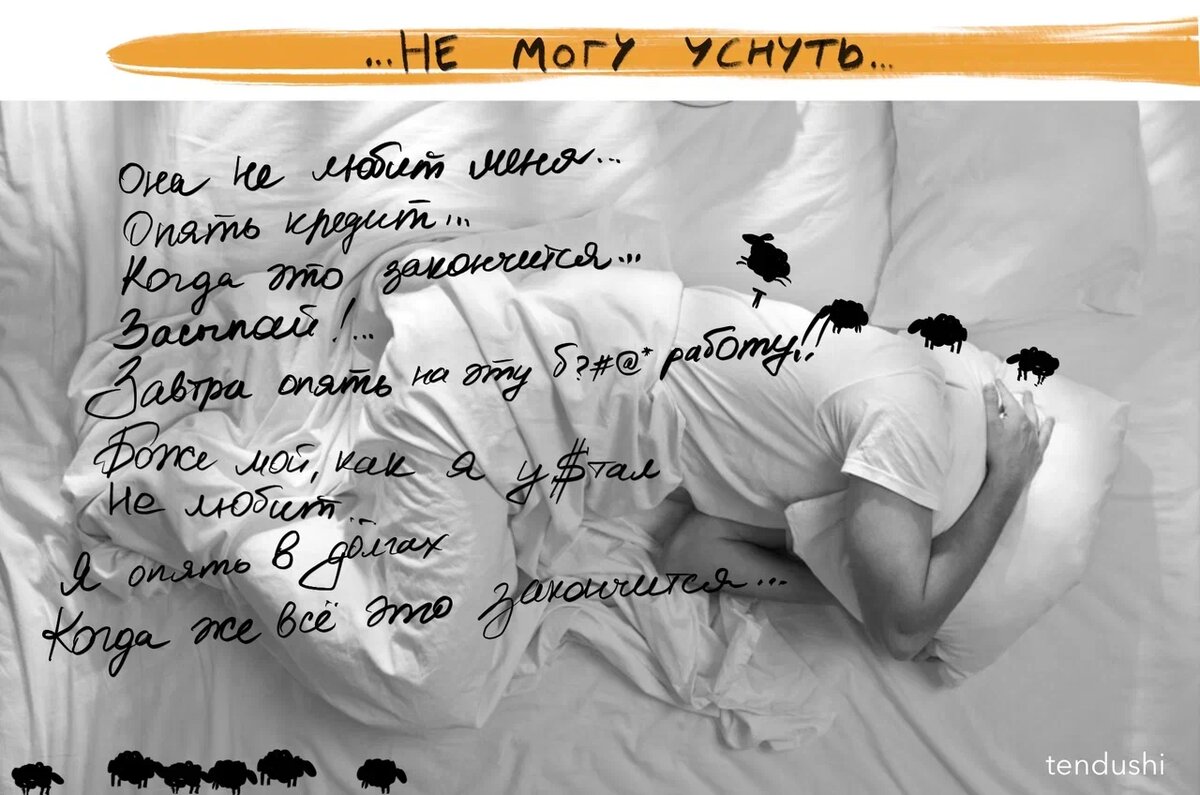 ...НЕ МОГУ УСНУТЬ...
Она не любит меня...
Опять кредит...
Когда это закончится...
Засыпай!...
Завтра опять на эту б?#@* работу!!
Боже мой, как я у$тал
Не любит..
Я опять в долгах
Когда же всё это закончится...
tendushi